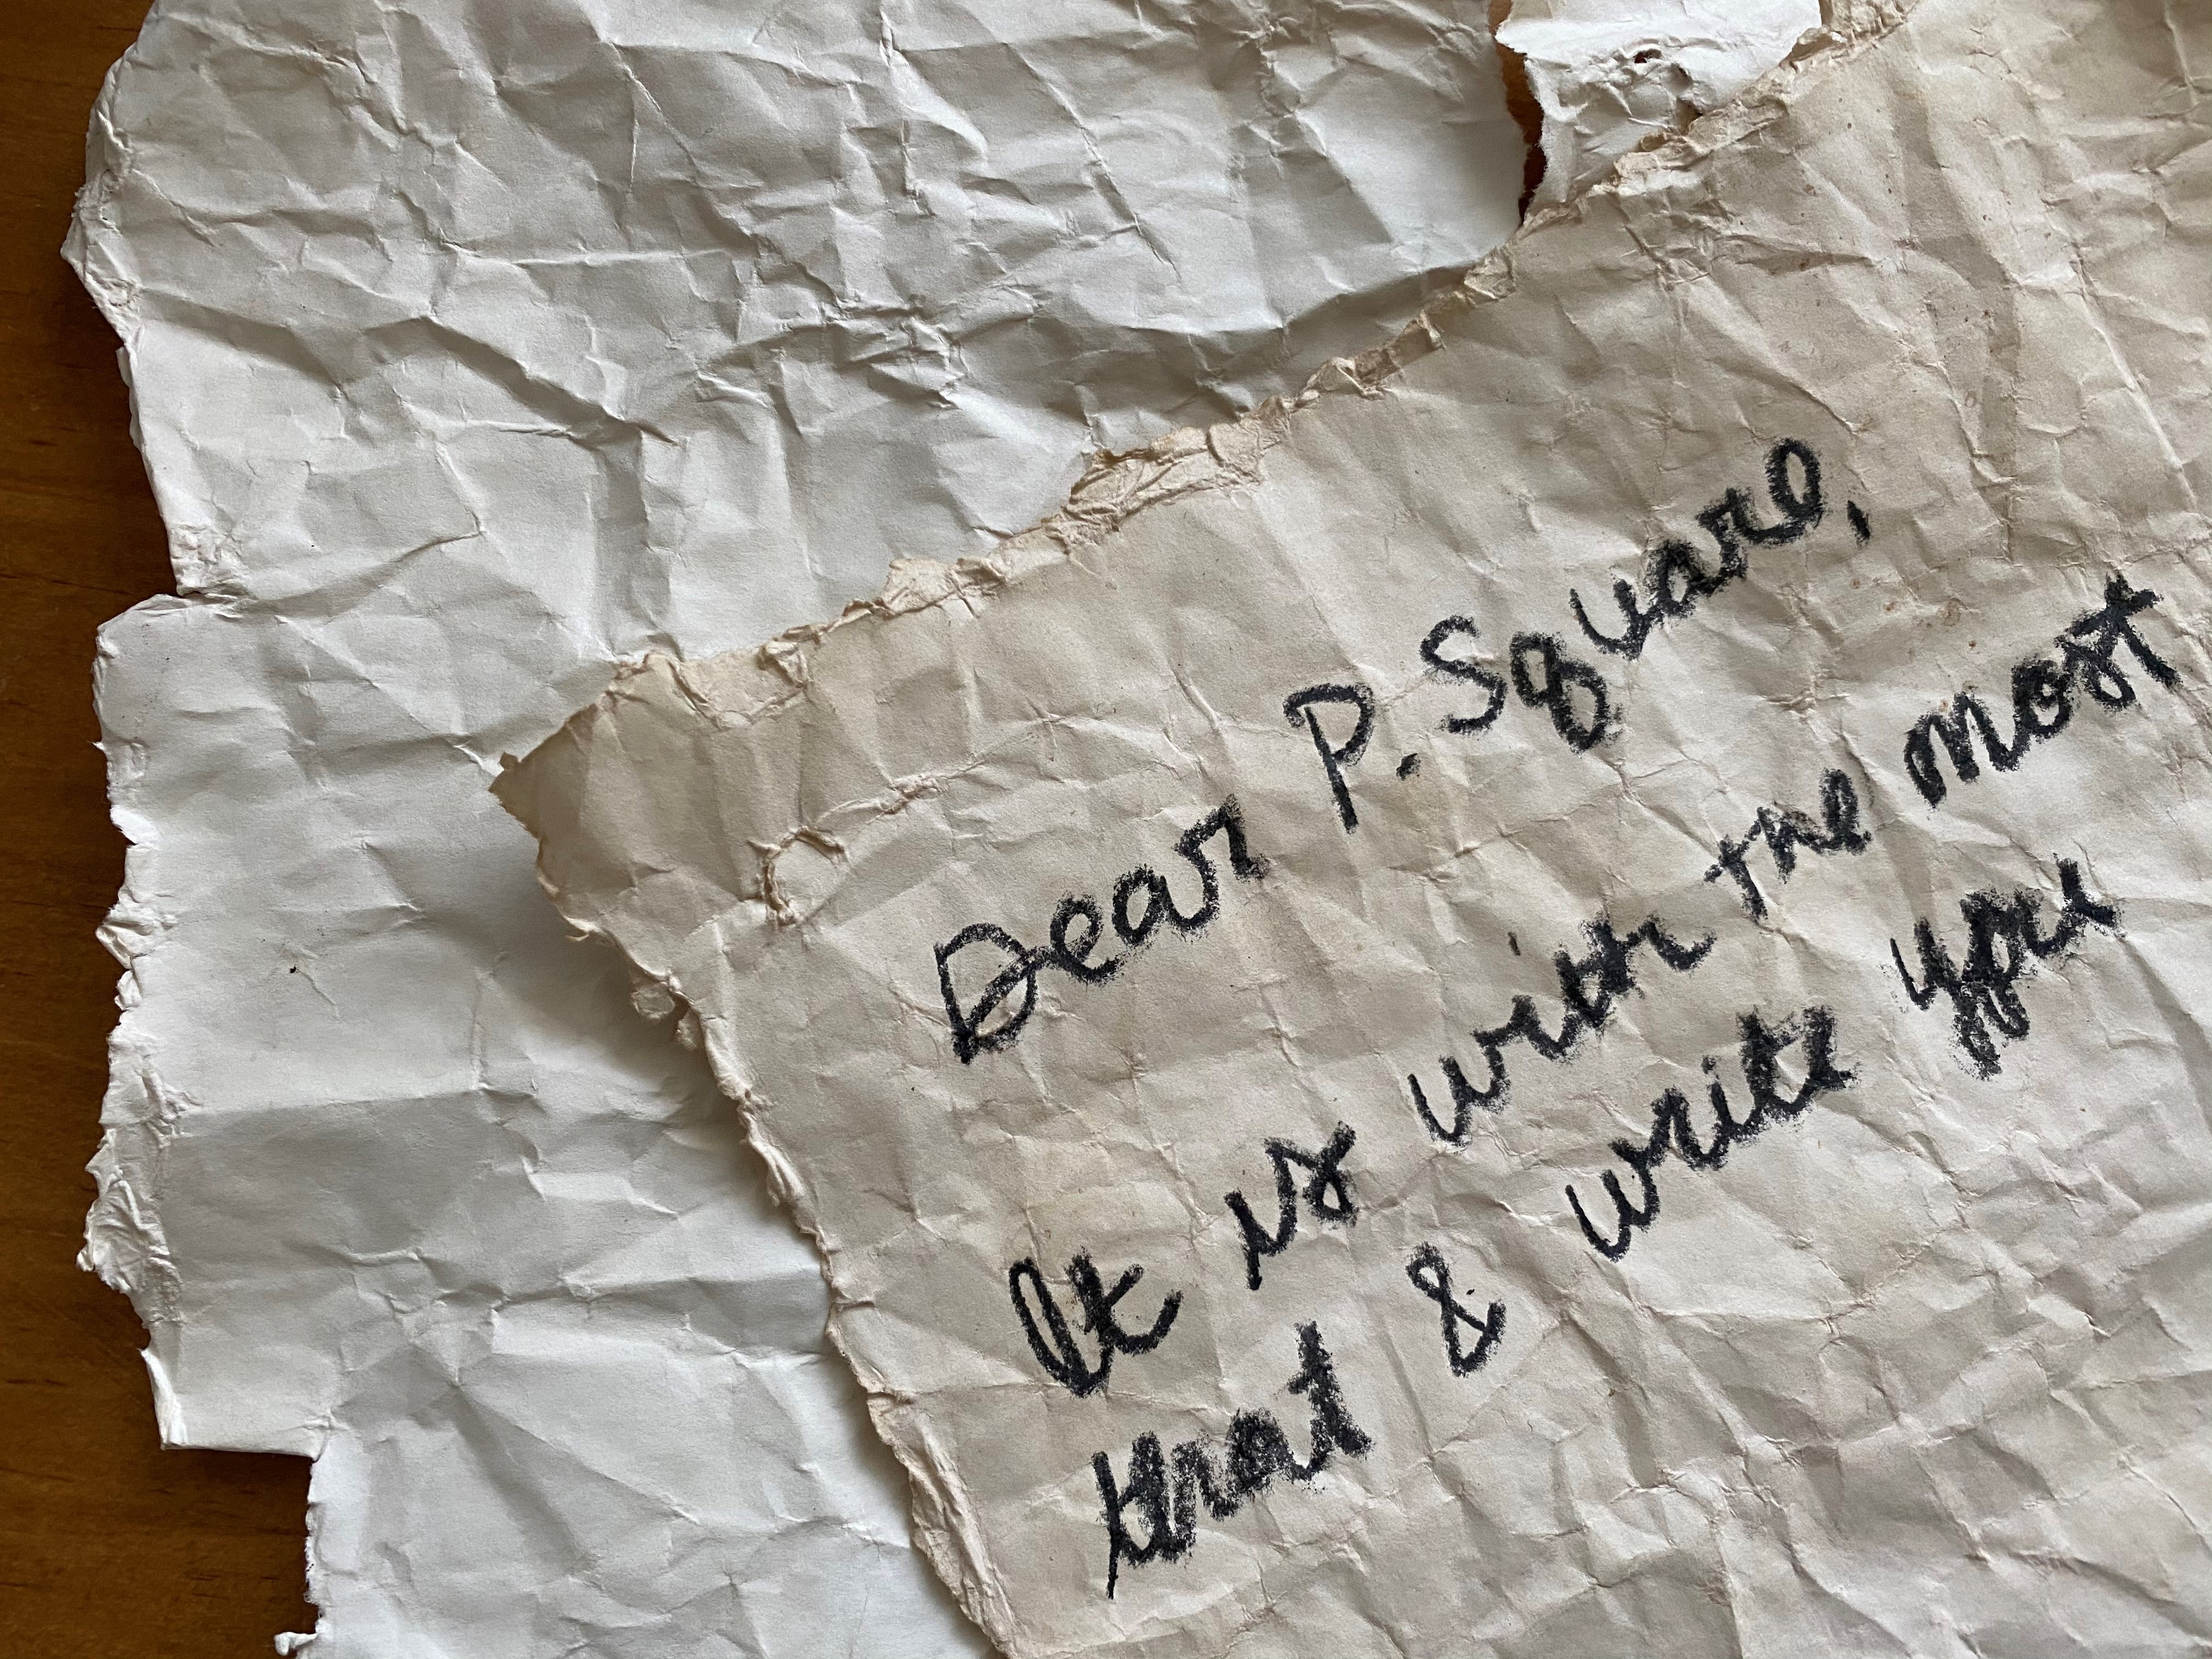 Dear P. Square,
It is with the most
that I write you